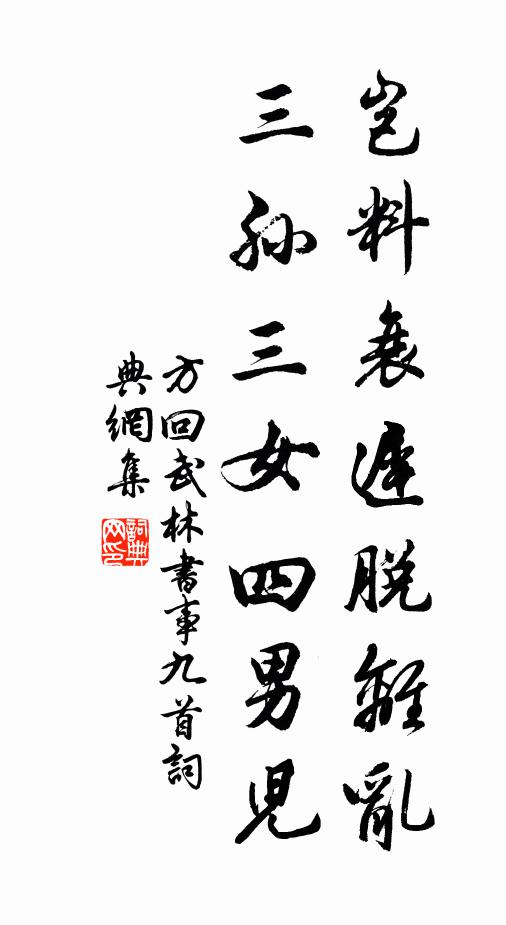 豈料衰遲脫離亂
三孫三女四男兒
方回武林書事九首詞
典網集
詞典网印